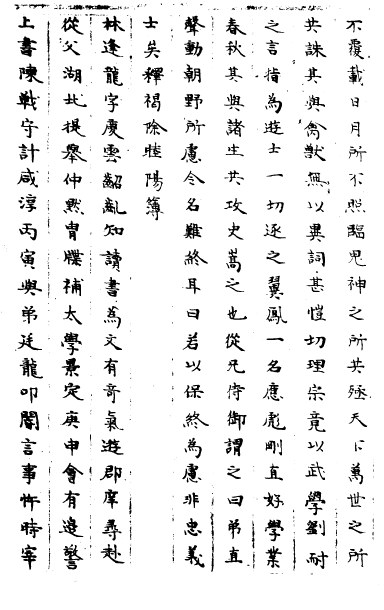 不覆載日月所不照臨鬼神之所共殛天下萬世之所
共誅其與禽獸無以異詞甚愷切理宗竟以武學劉耐
之言指為遊士一切逐之翼鳳一名應彪剛直好學業
春秋其與諸生共攻史嵩之也從兄侍御謂之曰弟直
聲動朝野所慮令名難終耳曰若以保終為慮非忠義
士矣釋褐除睦陽簿
林逢龍字慶雲齠齓知讀書為文有奇氣遊郡庠尋赴
從父湖北提舉仲㷍胄牒補太學景定庚申會有邊警
上書陳戰守計咸淳丙寅與弟廷龍叩閽言事忤時宰